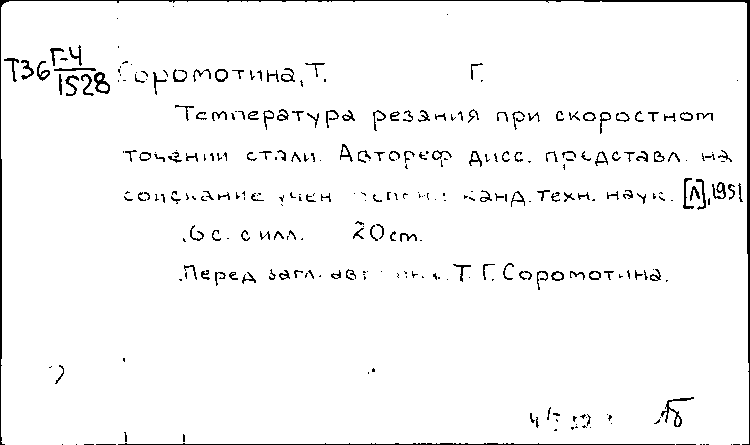 Т36 Г-4/1528 Соромотина, Т. Г.
Температура резания при скоростном
точении стали. Автореф дисс. представл. на
соискание учен степени канд. техн. наук. [Л], 1951
6 с. с илл. 20 cm.
Перед загл. авт: Т. Г. Соромотина.